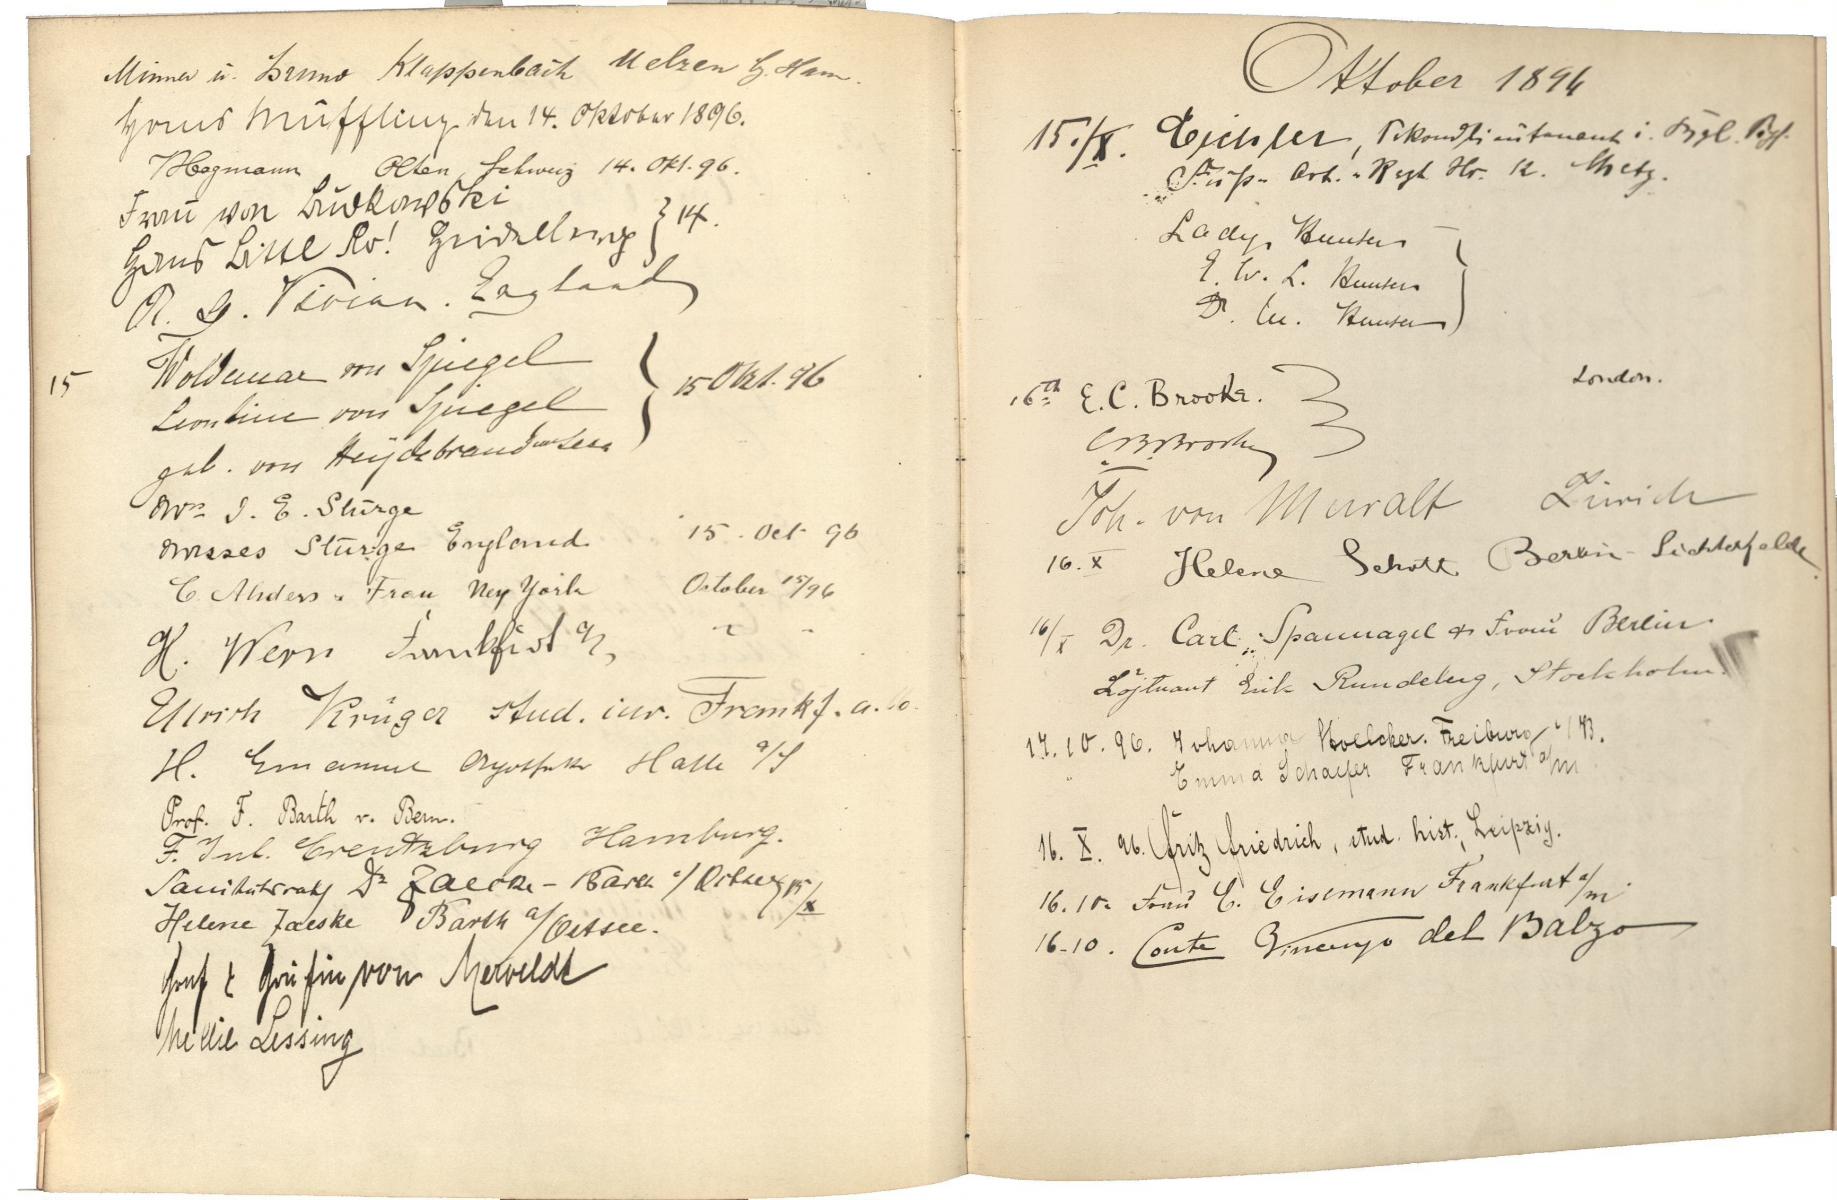 Minna u. Bruno Klappenbach Uelzen
Hans Müffling den 14. Oktober 1896.
Hegmann Olten Schweiz 14. Okt. 96.
Frau von
Hans Heidelberg } 14.
Vivian. England
15 Woldemar von Spiegel
Leontine von Spiegel } 15 Okt. 96
geb. von Heydebrand
Mrs J. E. Sturge
Misses Sturge England 15. Oct 96
C. Ahders u. Frau New York October 15/96
H. Wern Frankfurt
Ulrich Krüger stud. iur. Frankf. a.
H. Halle a/S
Prof. F. Barth v. Bern.
F. Jul. Creutzburg Hamburg.
Sanitätsrath Dr Jaeske - Barth a/Ostsee 15/X
Helene Jaeske Barth a/Ostsee.
Graf & Gräfin von Merveldt
Lessing
Oktober 1896
15./X. Eichler, Sekondlieutenant i.
Fuß-Art.-Regt Nr. 12. Metz.
Lady Hunter
E. W. L. Hunter
Dr. W. Hunter
16th E. C. Brooke. London.
Joh. von Muralt Zürich
16. X Helene Schott Berlin-Lichterfelde
16/X Dr. Carl Spannagel & Frau Berlin.
Löjtnant Erik Rundberg, Stockholm.
17. 10. 96. Johanna Voelcker. Freiburg i/B.
" Emma Schaefer Frankfurt a/M
16. X. 96. Fritz Friedrich, stud. hist. Leipzig.
16. 10. Frau C. Eisemann Frankfurt a/M
16-10. Conte Vincenzo del Balzo